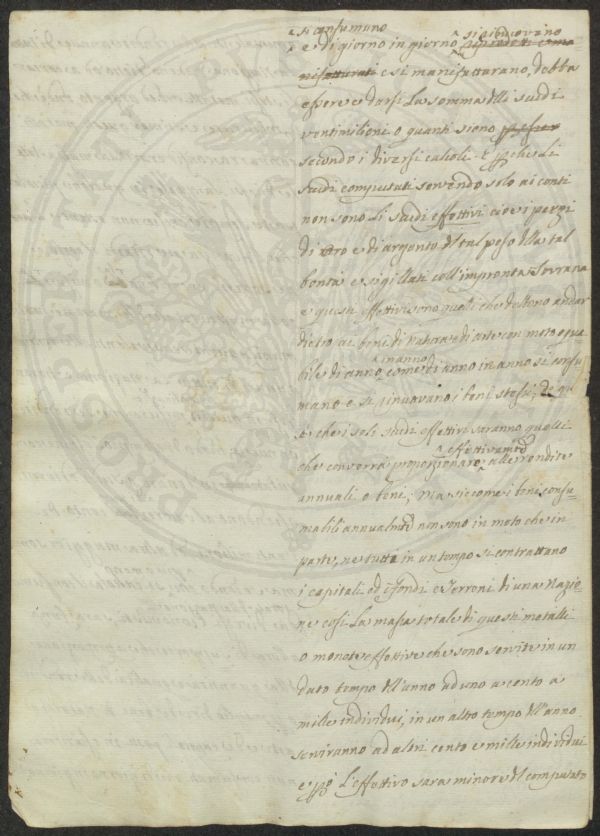 e si consumano
e di giorno in giorno si riducevano
e si manifatturano, debba
essere e darsi La somma dlli scudi
ventimilioni o quanti siano
secondo i diversi calcoli. E pche Li
scudi computati servendo solo ai conti
non sono Li scudi effettivi cioè i pezzi
di oro e di argento dl tal peso dlla tal
bontà e sigillati coll'impronta Sovrana
e questi effettivi sono quelli che debbono andar
dietro ai beni di natura e di arte con moto equa-
bile di anno in anno come di anno in anno si consu-
mano e si rinuovano i beni stessi;
che i soli scudi effettivi saranno quelli
che converrà proporzionare effettivamte alle rendite
annuali o beni; Ma siccome i beni consu-
mabili annualmte non sono in moto che in
parte, ne tutta in un tempo si contrattano
i capitali ed i fondi e Terreni di una Nazio-
ne così La massa totale di questi metalli
o monete effettive che sono servite in un
dato tempo dll'anno ad uno a cento a
mille individui, in un altro tempo dll'anno
serviranno ad altri cento e mille individui
e pp L'effettivo sarà minore dl computato